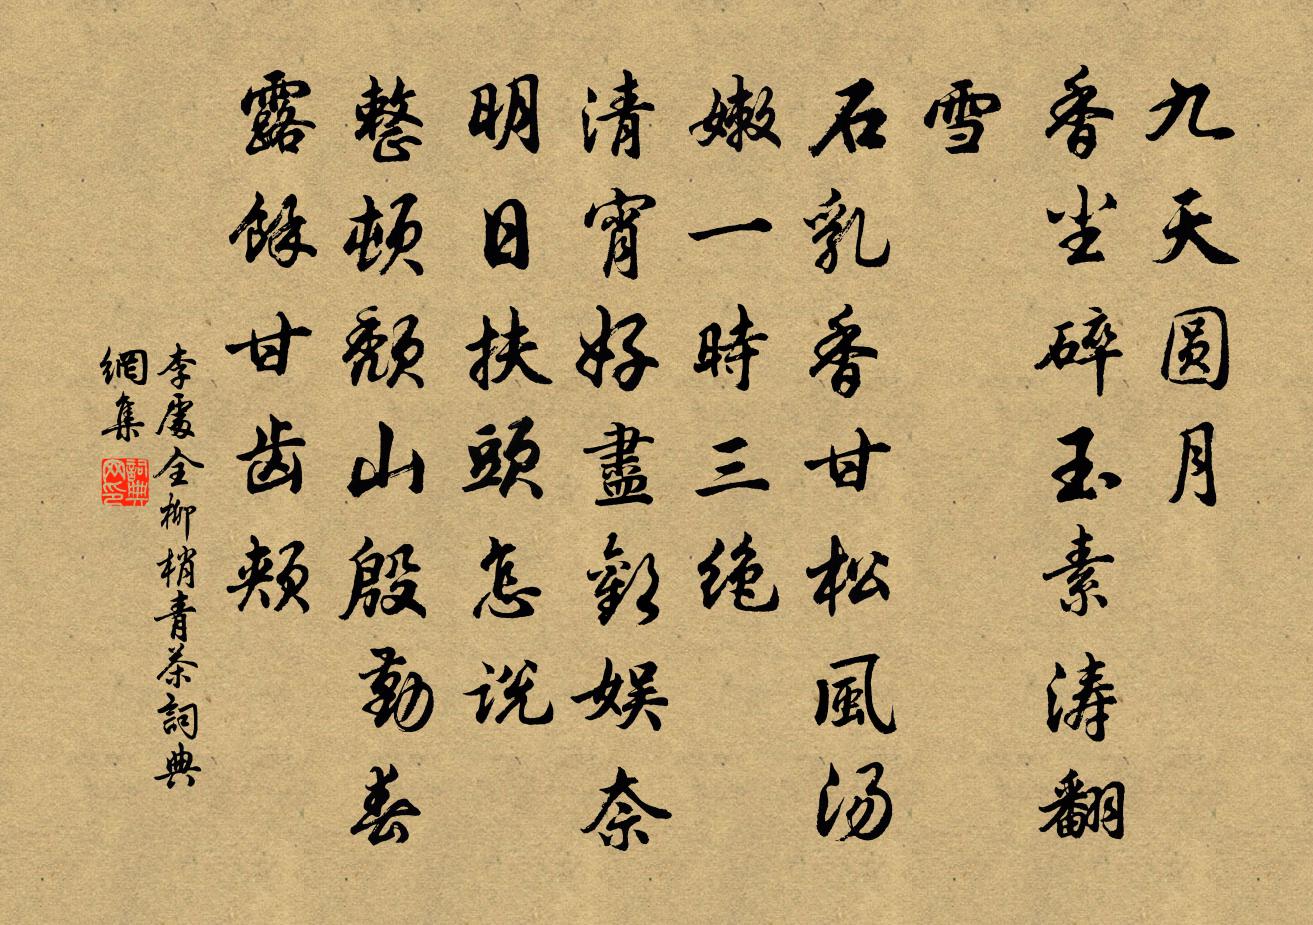 九天圆月
香尘碎玉素涛翻
雪
石乳香甘松風汤
嫩一時三绝
清宵好盡歡娱奈
明日扶頭怎说
整顿颓山殷勤春
露餘甘齿颊
李處全柳梢青茶詞典
網集
詞典網印